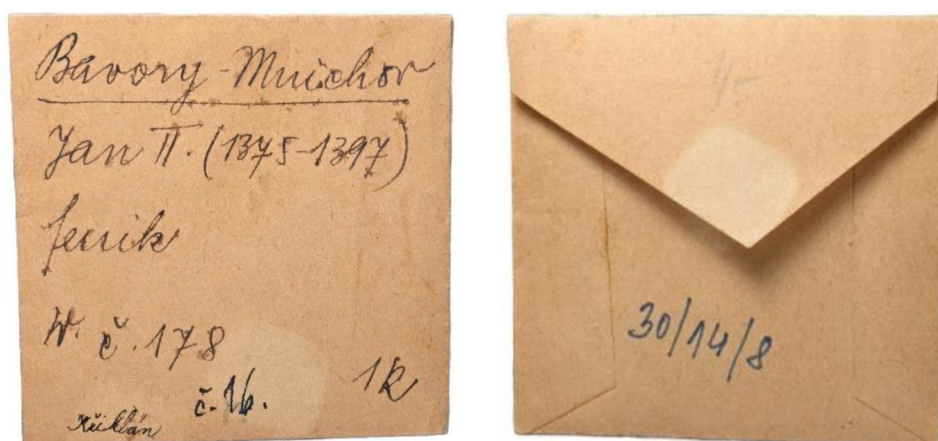 Bavory - Mnichov
Jan II. (1375-1397)
fenik
W. č. 178
č. 16.
1k
30/14/8